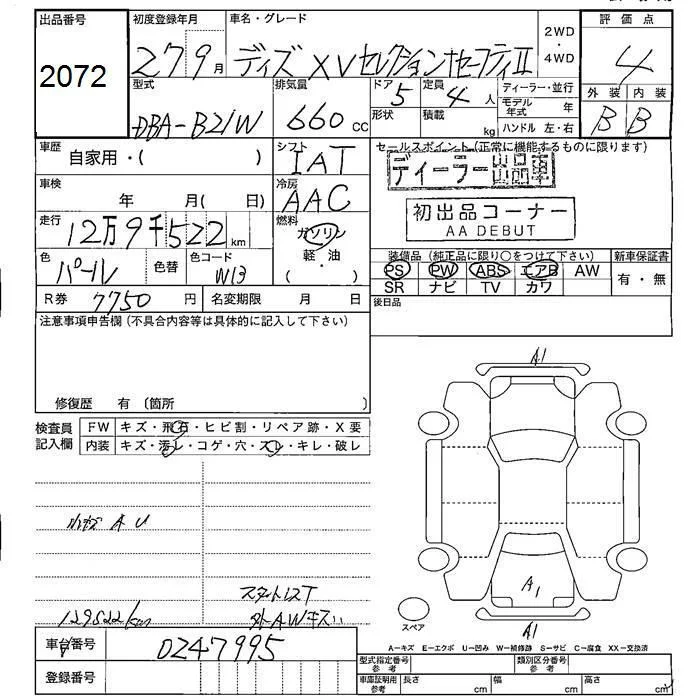 出品番号
2072
初度登録年月
27 9月
車名・グレード
ディズ XV セレクション+セーフティII
2WD
・
4WD
評価点
4
外装 内装
B B
型式
DBA-B21W
排気量
660 CC
ドア 5
形状
定員 4 人
積載 kg
ディーラー・並行
モデル年式 年
ハンドル 左・右
車歴
自家用・( )
シフト
IAT
セールスポイント (正常に機能するものに限ります)
ディーラー出品車
初出品コーナー
AA DEBUT
車検
年 月( 日)
冷房
AAC
走行
12万9千522km
燃料
ガソリン
軽・油
( )
色
パール
色替
色コード
W13
装備品 (純正品に限り○をつけて下さい)
PS PW ABS エアB AW
SR ナビ TV カワ
新車保証書
有・無
R券 7750 円
名変期限 月 日
後日品
注意事項申告欄 (不具合内容等は具体的に記入して下さい)
修復歴 有 〔箇所 〕
検査員
記入欄
FW キズ・飛石・ヒビ割・リペア跡・X要
内装 キズ・汚レ・コゲ・穴・スレ・キレ・破レ
小キズ A U
スタートレスT
外AWキズ
129522km
A1
A1
A1
スペア
A-キズ E-エクボ U-凹み W-補修跡 S-サビ C-腐食 XX-交換済
車台番号
0247995
登録番号
型式指定番号
参考
類別区分番号
参考
車庫証明用
参考
長さ cm
幅 cm
高さ cm